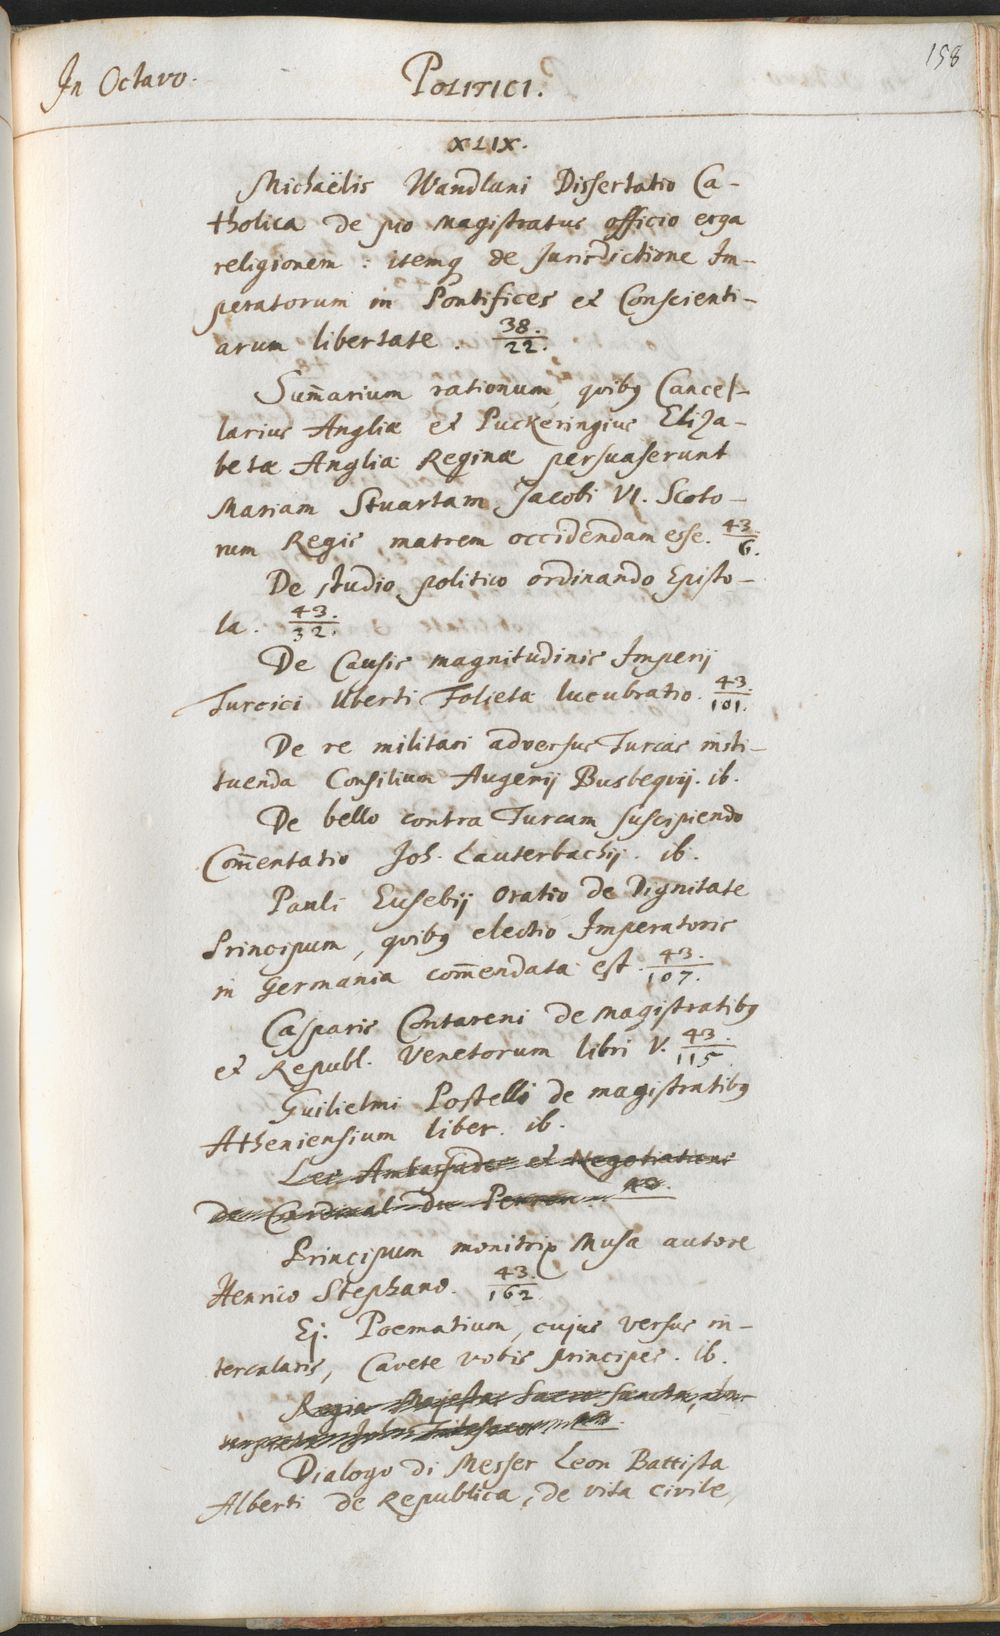 158
In Octavo.
POLITICI.
XLIX.
Michaëlis Wandluni Dissertatio Ca-
tholica de pio magistratus officio erga
religionem : itemq de Jurisdictione Im-
peratorum in Pontifices et Conscienti-
arum libertate . 38./22.
Sum̄arium rationum, quibꝫ Cancel-
larius Angliæ et Puckeringius Eliza-
betæ Angliæ Reginæ persuaserunt
Mariam Stuartam Jacobi VI. Scoto-
rum Regis matrem occidendam esse. 43./6.
De studio politico ordinando Episto-
la. 43./32.
De Causis magnitudinis Imperij
Turcici Uberti Folietæ lucubratio. 43./101.
De re militari adversus Turcas insti-
tuenda Consilium Augerij Busbequij. ib.
De bello contra Turcam suscipiendo
Com̄entatio Joh. Lauterbachij. ib.
Pauli Eusebij Oratio de Dignitate
Principum, quibꝫ electio Imperatoris
in Germania com̄endata est. 43./107.
Casparis Contareni de magistratibꝫ
et Republ. Venetorum libri V. 43./115
Guilielmi Postelli de magistratibꝫ
Atheniensium liber. ib.
Les Ambassades et Negotiations
de Cardinal du Perron. 43.
Principum monitrix Musa autore
Henrico Stephano. 43./162.
Ej. Poematium, cujus versus in-
tercalaris, Cavete vobis principes. ib.
Regia Majestas Sacro Sancta,
43.
Dialogo di Messer Leon Battista
Alberti de Republica, de vita civile,